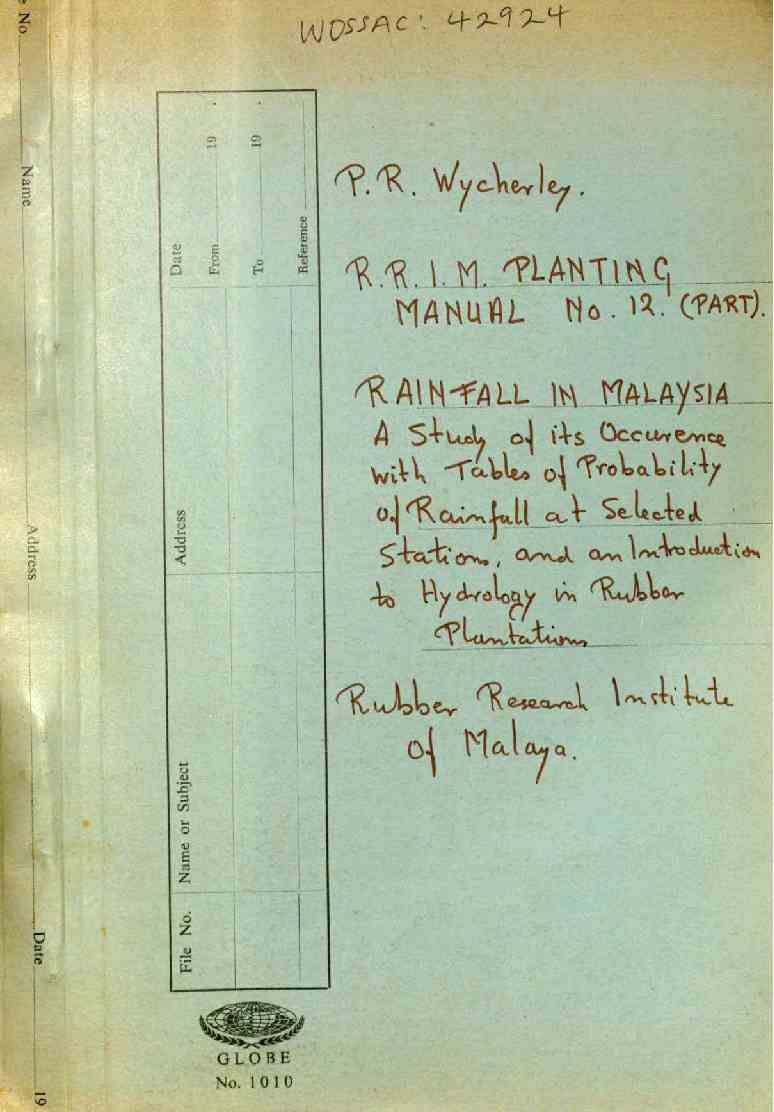 WOSSAC: 42924
P.R. Wycherley.
R.R.I.M. PLANTING
MANUAL No. 12. (PART).
RAINFALL IN MALAYSIA
A Study of its Occurence
with Tables of Probability
of Rainfall at Selected
Stations, and an Introduction
to Hydrology in Rubber
Plantations
Rubber Research Institute
of Malaya.
File No.
Name or Subject
Address
Date
From 19 .
To 19 .
Reference
GLOBE
No. 1010
No.
Name
Address
Date
19